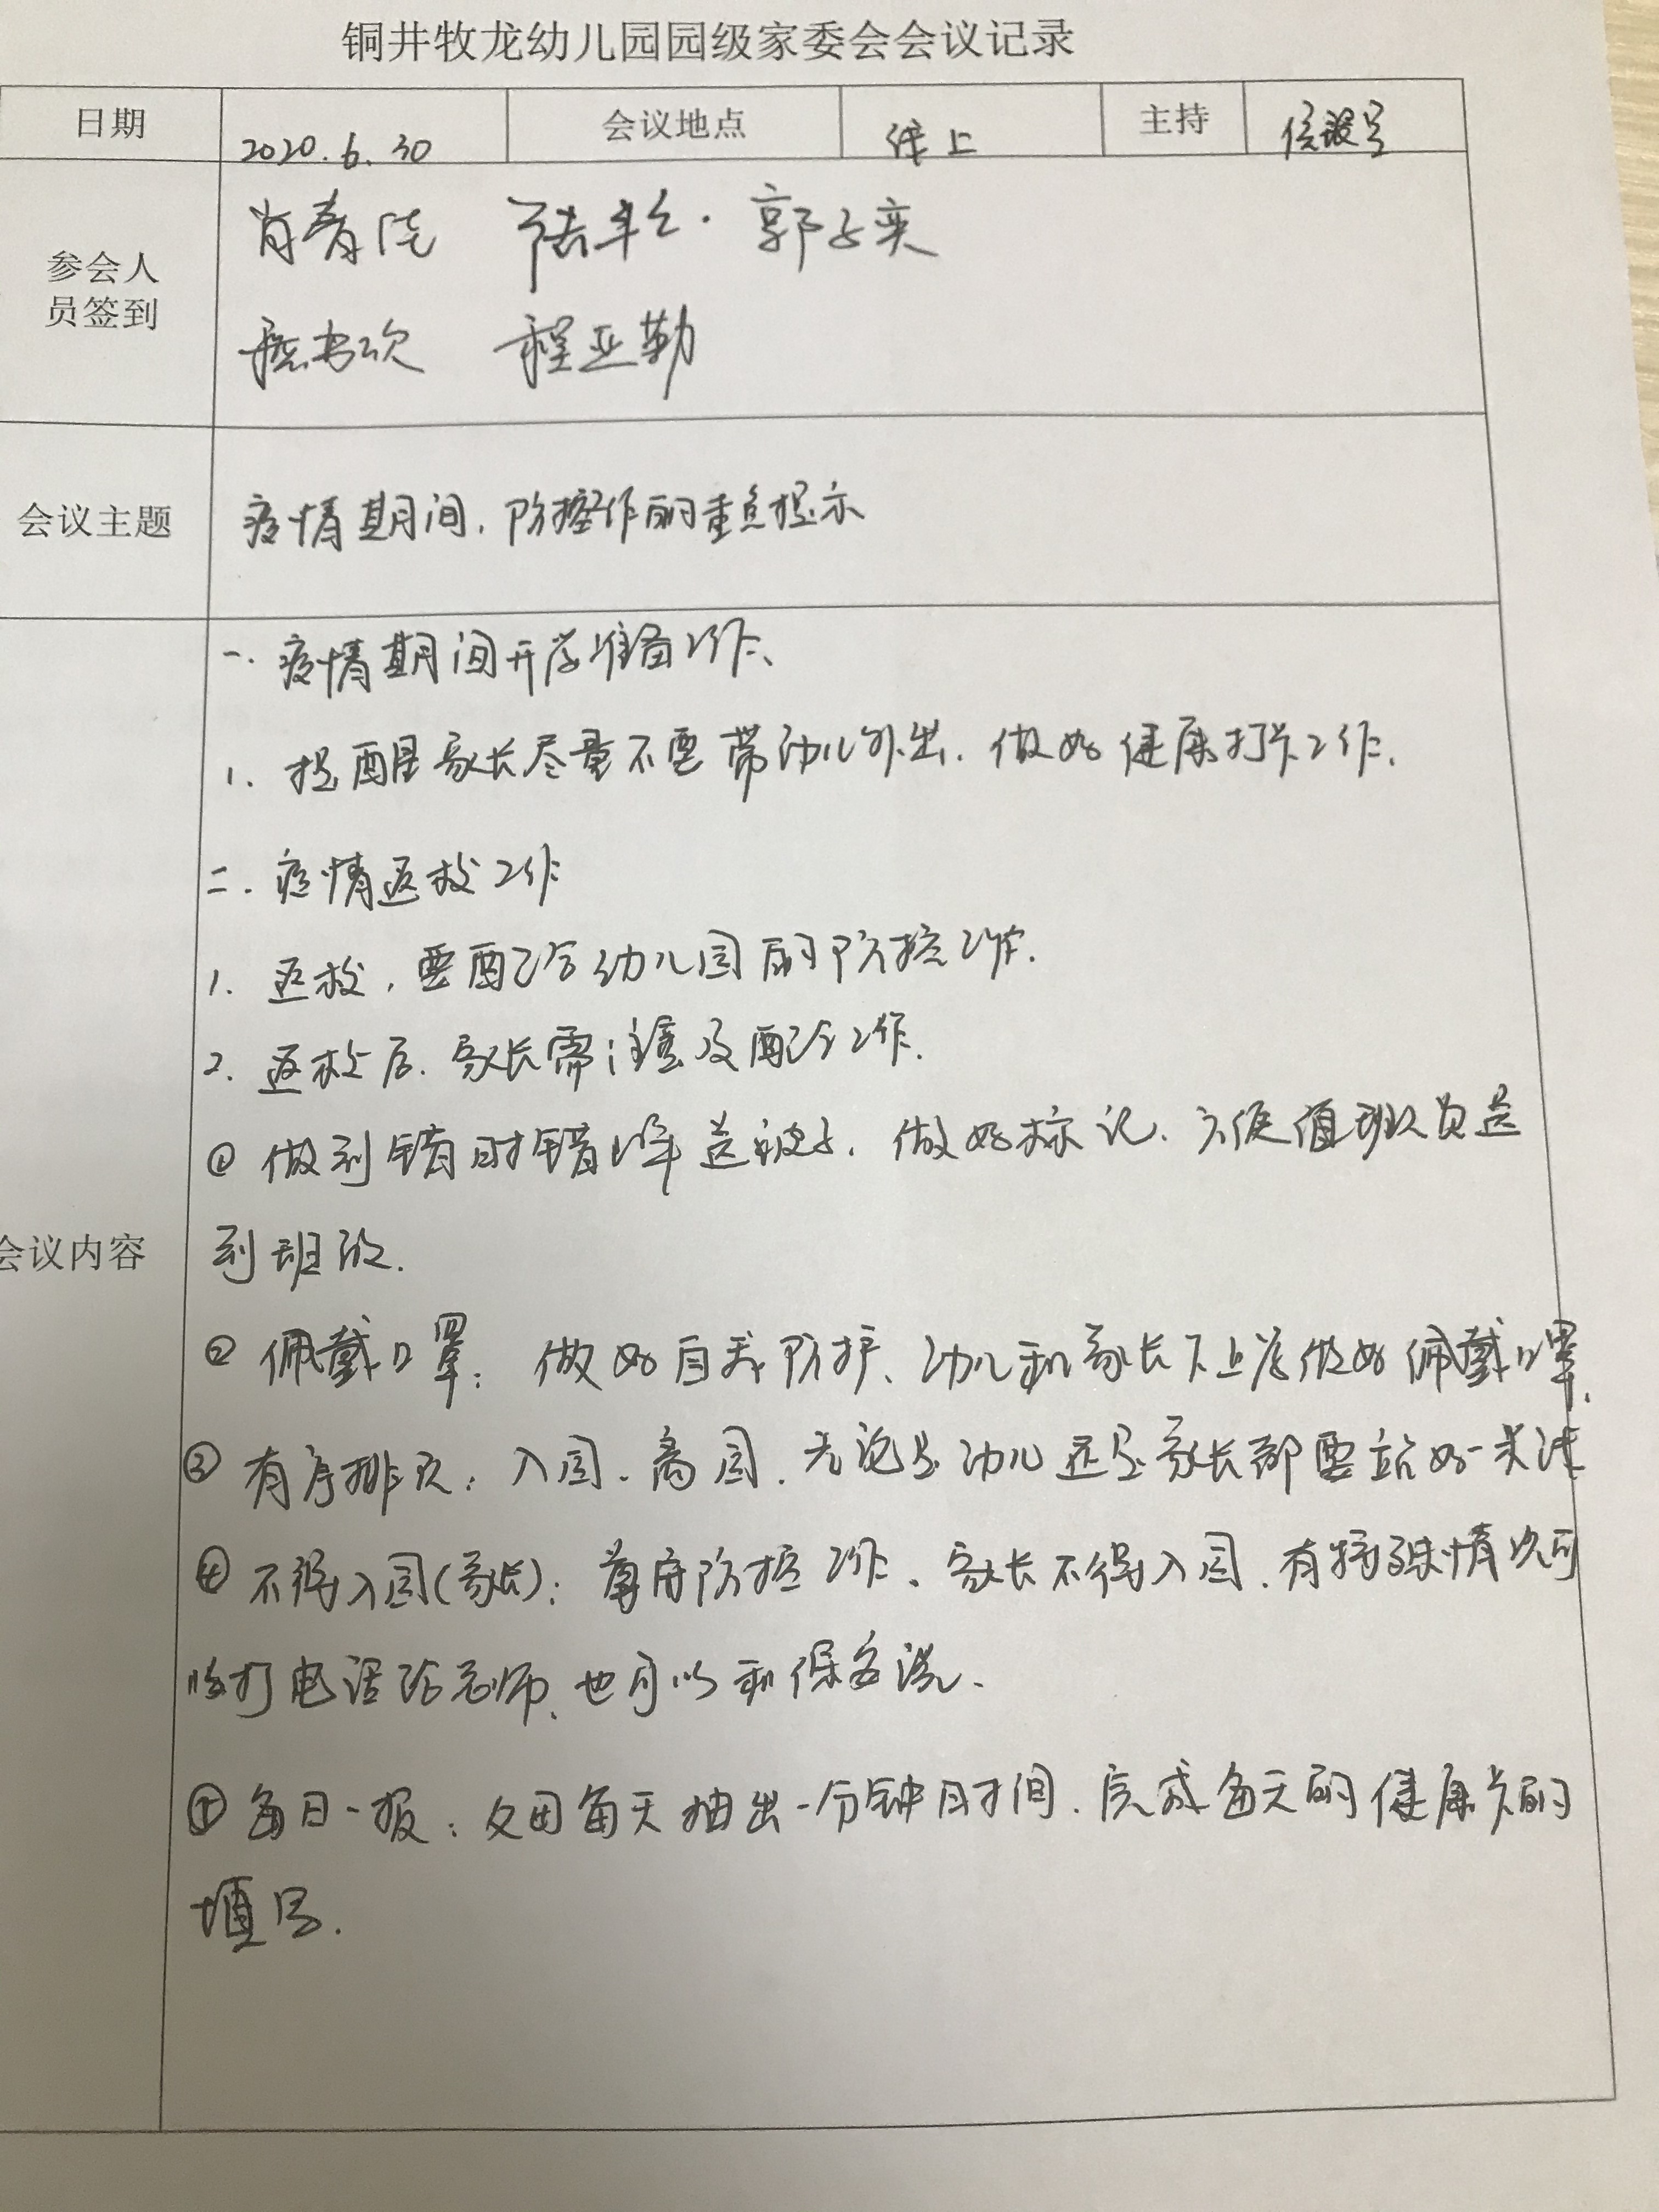 铜井牧龙幼儿园园级家委会会议记录
日期 2020.6.30 会议地点 线上 主持
参会人
员签到
郭子奕
程亚勤
会议主题 疫情期间,防控工作的重点提示
一.疫情期间开学准备工作、
1.提醒家长尽量不要带幼儿外出.做好健康打卡工作.
二.疫情返校工作
1.返校,要配合幼儿园的防控工作.
2.返校后.家长需注意及配合工作.
① 做到错时错峰送被子.做好标记.方便值班人员送
会议内容 到班级.
② 佩戴口罩:做好自我防护、幼儿和家长下上学做好佩戴口罩.
③ 有序排队:入园、离园.无论是幼儿还是家长都要站好一米线
④ 不得入园(家长):遵守防控工作、家长不得入园.有特殊情况可
打电话给老师、也可以和保安说.
⑤ 每日一报:每天抽出一分钟时间.完成每天的健康卡的
填写.